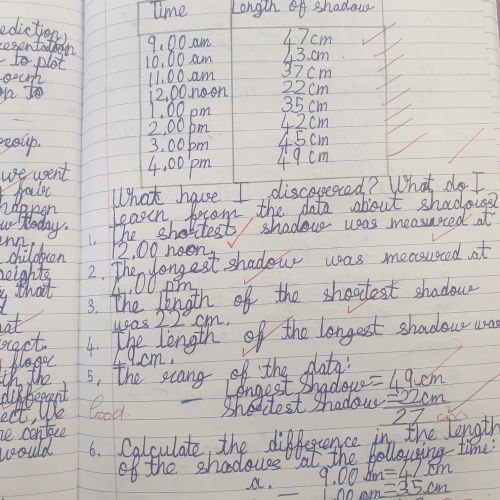 ediction,
resentation
to plot
form
on to
Group.
we went
fair
happen
w today.
children
heights
that
rect.
floor
ith the
different
ect, We
re centre
would
Time Length of shadow
9.00 am 47cm
10.00 am 43 cm
11.00 am 37 cm
12.00 noon 22 cm
1.00 pm 35 cm
2.00 pm 42 cm
3.00 pm 45 cm
4.00 pm 49 cm
What have I discovered? What do I
learn from the data about shadows?
1. The shortest shadow was measured at
12.00 noon.
2. The longest shadow was measured at
4.00 pm.
3. The length of the shortest shadow
was 22 cm.
4. The length of the longest shadow was
49 cm.
5. The rang of the data:
Longest Shadow = 49 cm
Good. - Shortest Shadow = 22 cm
27 cm
6. Calculate the difference in the length
of the shadows at the following time:
a. 9.00 am = 47 cm
- 1.00 pm = 35 cm